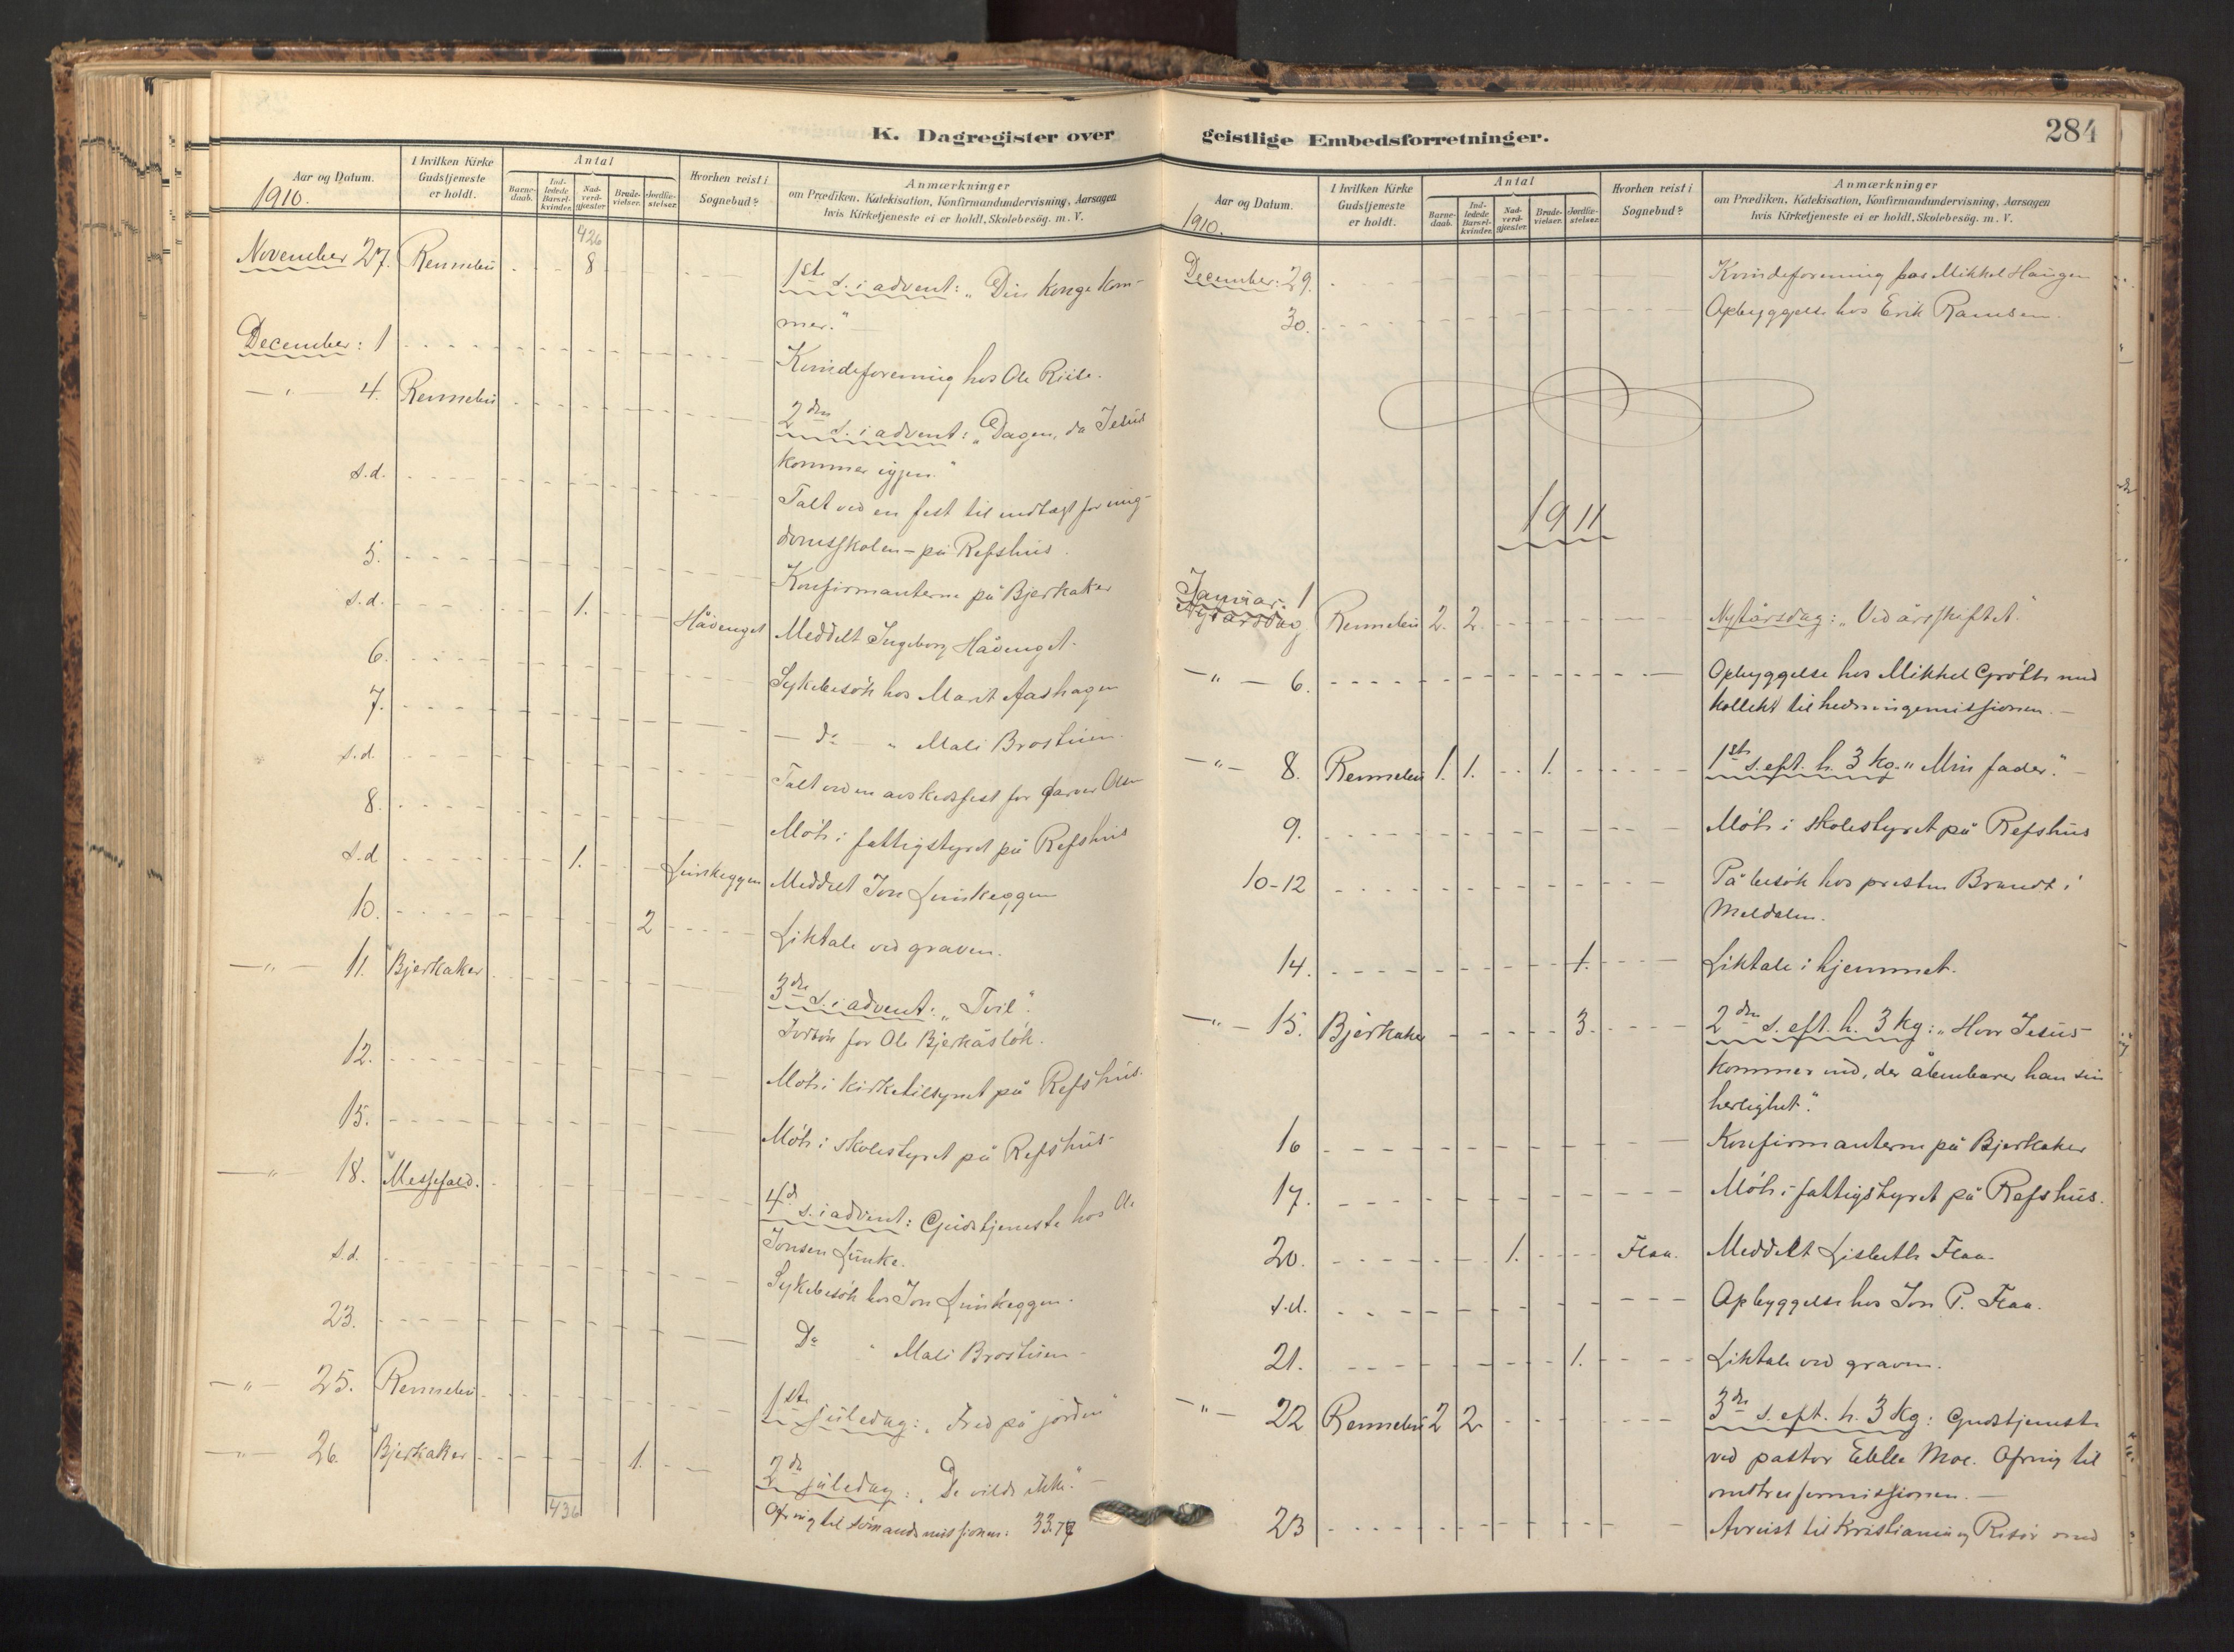 K. Dagregister over
Aar og Datum.
1910.
I hvilken Kirke Gudstjeneste er holdt.
Antal
Barne-daab.
Ind-ledede Barsel-kvinder.
Nad-verd-gjæster.
Brude-vielser.
Jordfæ-stelser.
Hvorhen reist i Sognebud?
Anmærkninger
om Prædiken, Katekisation, Konfirmandundervisning, Aarsagen
hvis Kirketjeneste ei er holdt, Skolebesøg. m. V.
426
November 27. Rennebu 8 1ste s. i advent: "Din konge kom-
mer."
December: 1 Kvindeforening hos Ole Riise.
— " — 4. Rennebu 2den s. i advent: "Dagen, da Jesus
kommer igjen."
s.d. Talt ved en fest til indtægt for ung-
domsskolen – på Refshus.
5. Konfirmanterne på Bjerkaker
s.d. 1. Håvenget Meddelt Ingeborg Håvenget.
6. Sykebesök hos Marit Aashagen
7. — do — " Mali Brostuen.
s.d. Talt ved en avskedsfest for garver Olsen
8. Möte i fattigstyret på Refshus
s.d. 1. Lunkeggen Meddelt Jon Lunkeggen
10. 2 Liktale ved graven.
— " — 11. Bjerkaker 3die s. i advent: "Tvil".
Forbön for Ole Bjerkåslök.
12. Möte i kirketilsynet på Refshus.
15. Möte i skolestyret på Refshus.
— " 18. Messefald. 4de s. i advent: Gudstjeneste hos Ole
Jonsen Lunke.
s.d. Sykebesök hos Jon Lunkeggen.
23. Do " Mali Brostuen
— " — 25. Rennebu 1ste juledag: "Fred på jorden"
— " — 26. Bjerkaker 1. 2den juledag: "De vilde ikke." —
436 Ofring til sömandsmissionen: 33.77
geistlige Embedsforretninger.
284
Aar og Datum.
1910.
I hvilken Kirke Gudstjeneste er holdt.
Antal
Barne-daab.
Ind-ledede Barsel-kvinder.
Nad-verd-gjæster.
Brude-vielser.
Jordfæ-stelser.
Hvorhen reist i Sognebud?
Anmærkninger
om Prædiken, Katekisation, Konfirmandundervisning, Aarsagen
hvis Kirketjeneste ei er holdt, Skolebesøg. m. V.
December: 29. Kvindeforening hos Mikkel Haugen
30. Opbyggelse hos Erik Ramsem.
1911
Januar. 1
Nytårsdag Rennebu 2. 2. Nytårsdag: "Ved årsskiftet."
— " — 6. Opbyggelse hos Mikkel Gröthe med
kollekt til hedningemissionen. —
— " — 8. Rennebu 1. 1. 1. 1ste s. eft. h. 3 kg. "Min fader." —
9. Möte i skolestyret på Refshus
10-12 På besök hos presten Brandt i
Meldalen.
14. 1. Liktale i hjemmet.
— " — 15. Bjerkaker 3. 2den s. eft. h. 3 kg: "Hvor Jesus
kommer ind, der åbenbarer han sin
herlighet."
16 Konfirmanterne på Bjerkaker
17. Möte i fattigstyret på Refshus.
20. 1. Flaa. Meddelt Lisbeth Flaa.
s.d. Opbyggelse hos Jon P. Flaa.
21. 1. Liktale ved graven.
— " — 22 Rennebu 2 2 3die s. eft. h. 3 kg: Gudstjeneste
ved pastor Ebbe Moe. Ofring til
indremissionen. —
23 Avreist til Kristiania og Risör med